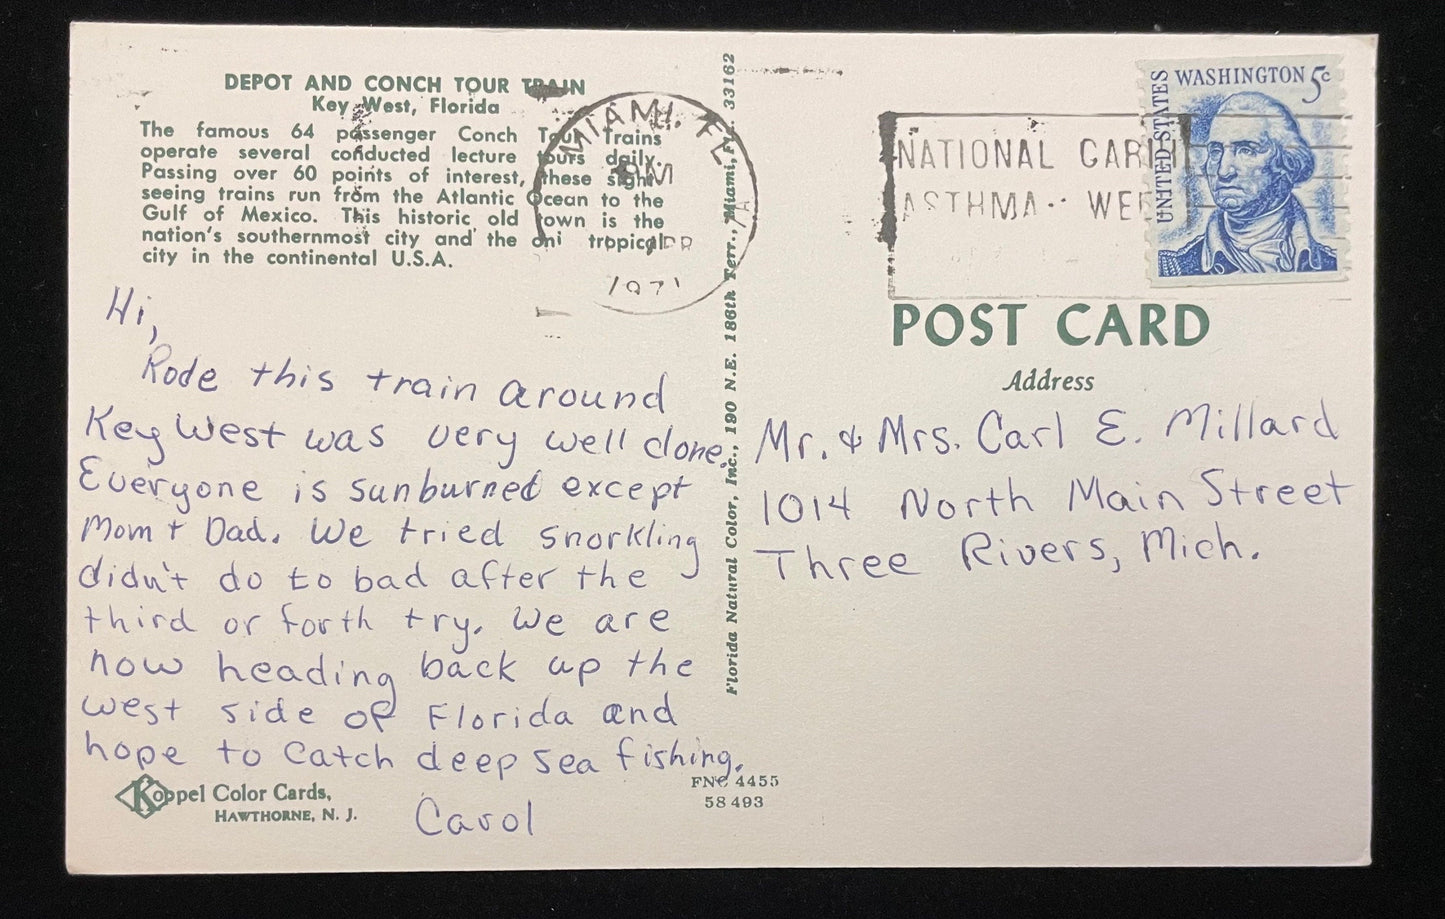 DEPOT AND CONCH TOUR TRAIN
Key West, Florida
The famous 64 passenger Conch Tour Trains
operate several conducted lecture tours daily.
Passing over 60 points of interest, these sight
seeing trains run from the Atlantic Ocean to the
Gulf of Mexico. This historic old town is the
nation's southernmost city and the only tropical
city in the continental U.S.A.
Hi,
Rode this train around
Key West was very well done.
Everyone is sunburned except
Mom + Dad. We tried snorkling
didn't do to bad after the
third or forth try. We are
now heading back up the
west side of Florida and
hope to catch deep sea fishing.
Carol
Koppel Color Cards,
HAWTHORNE, N. J.
FNC 4455
58 493
Florida Natural Color, Inc., 190 N.E. 186th Terr., Miami, Fl. 33162
MIAMI, FL
PM
APR
1971
NATIONAL
ASTHMA
UNITED STATES
WASHINGTON 5c
POST CARD
Address
Mr. & Mrs. Carl E. Millard
1014 North Main Street
Three Rivers, Mich.